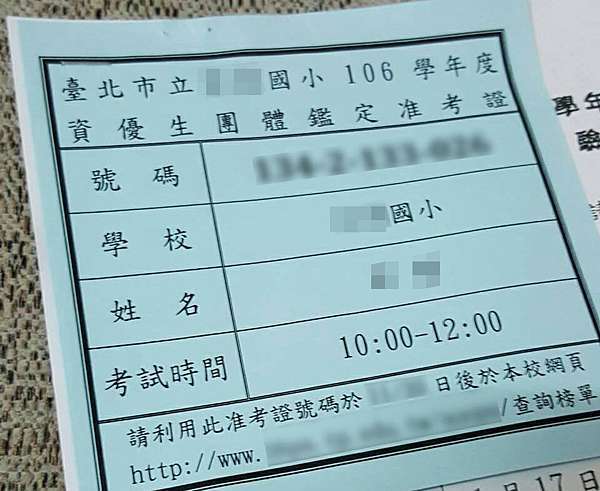 臺北市立 國小 106 學年度
資優生團體鑑定准考證
號碼
學校 國小
姓名
考試時間 10:00-12:00
請利用此准考證號碼於 日後於本校網頁
http://www. /查詢榜單
學年
驗
17日